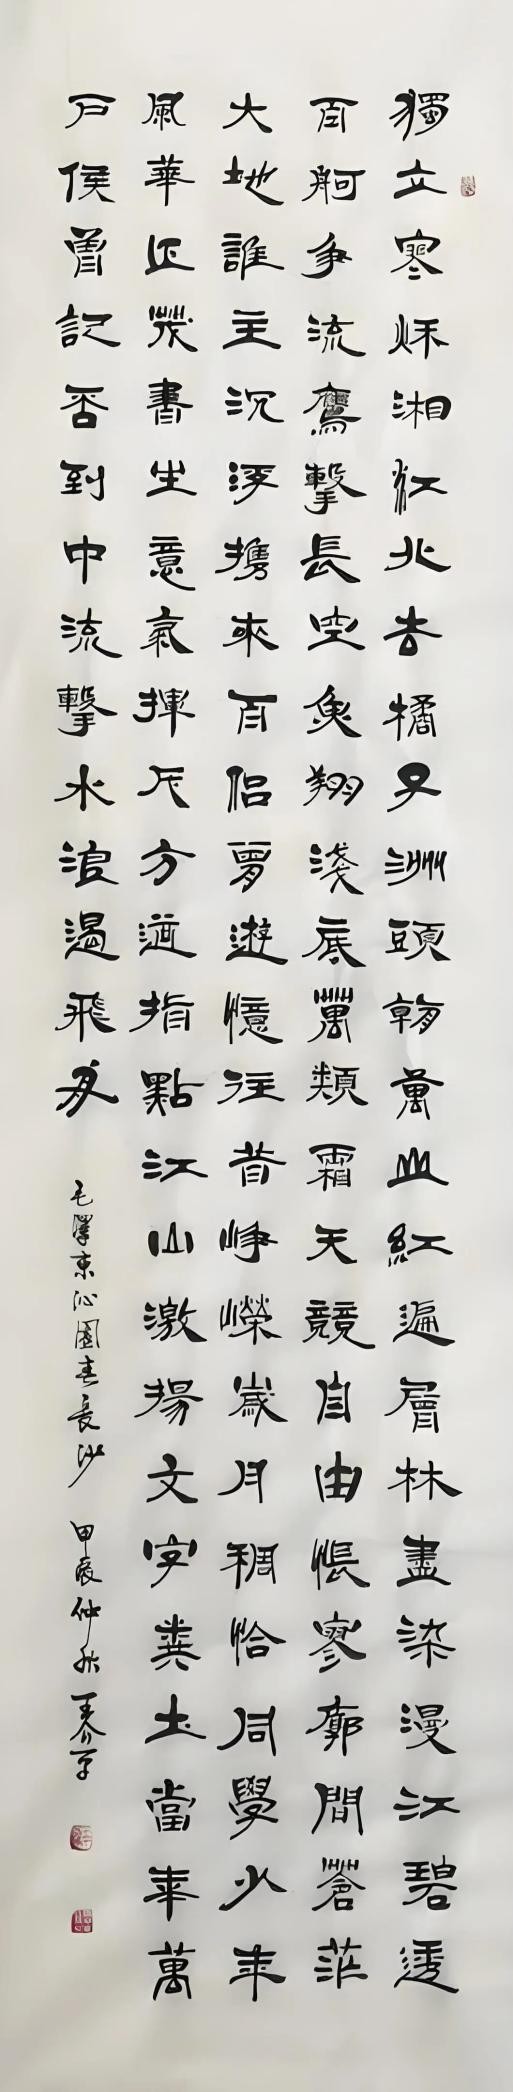 獨立寒秋湘江北去橘子洲頭看萬山紅遍層林盡染漫江碧透
百舸爭流鷹擊長空魚翔淺底萬類霜天競自由悵寥廓問蒼茫
大地誰主沉浮攜來百侶曾遊憶往昔崢嶸歲月稠恰同學少年
風華正茂書生意氣揮斥方遒指點江山激揚文字糞土當年萬
戶侯曾記否到中流擊水浪遏飛舟
毛澤東沁園春長沙 甲辰仲秋